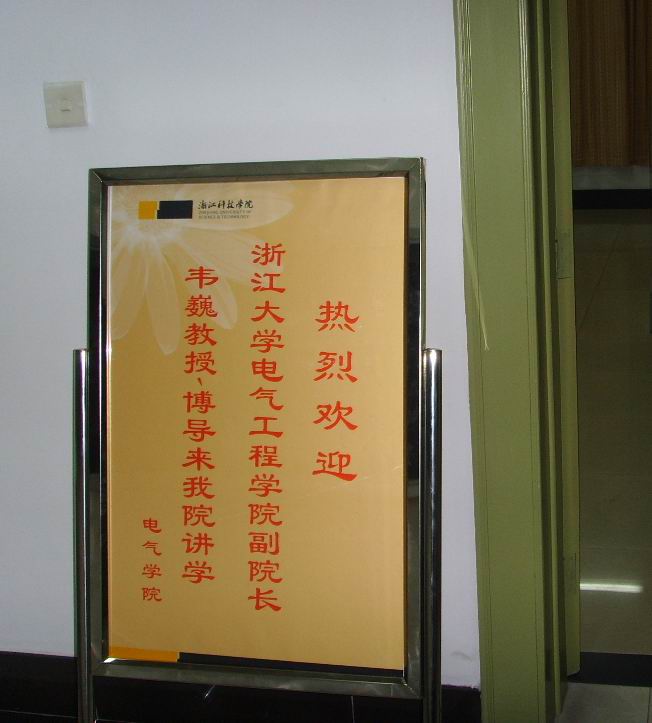 浙江科技学院
ZHEJIANG UNIVERSITY OF
SCIENCE & TECHNOLOGY
热烈欢迎
浙江大学电气工程学院副院长
韦巍教授、博导来我院讲学
电气学院